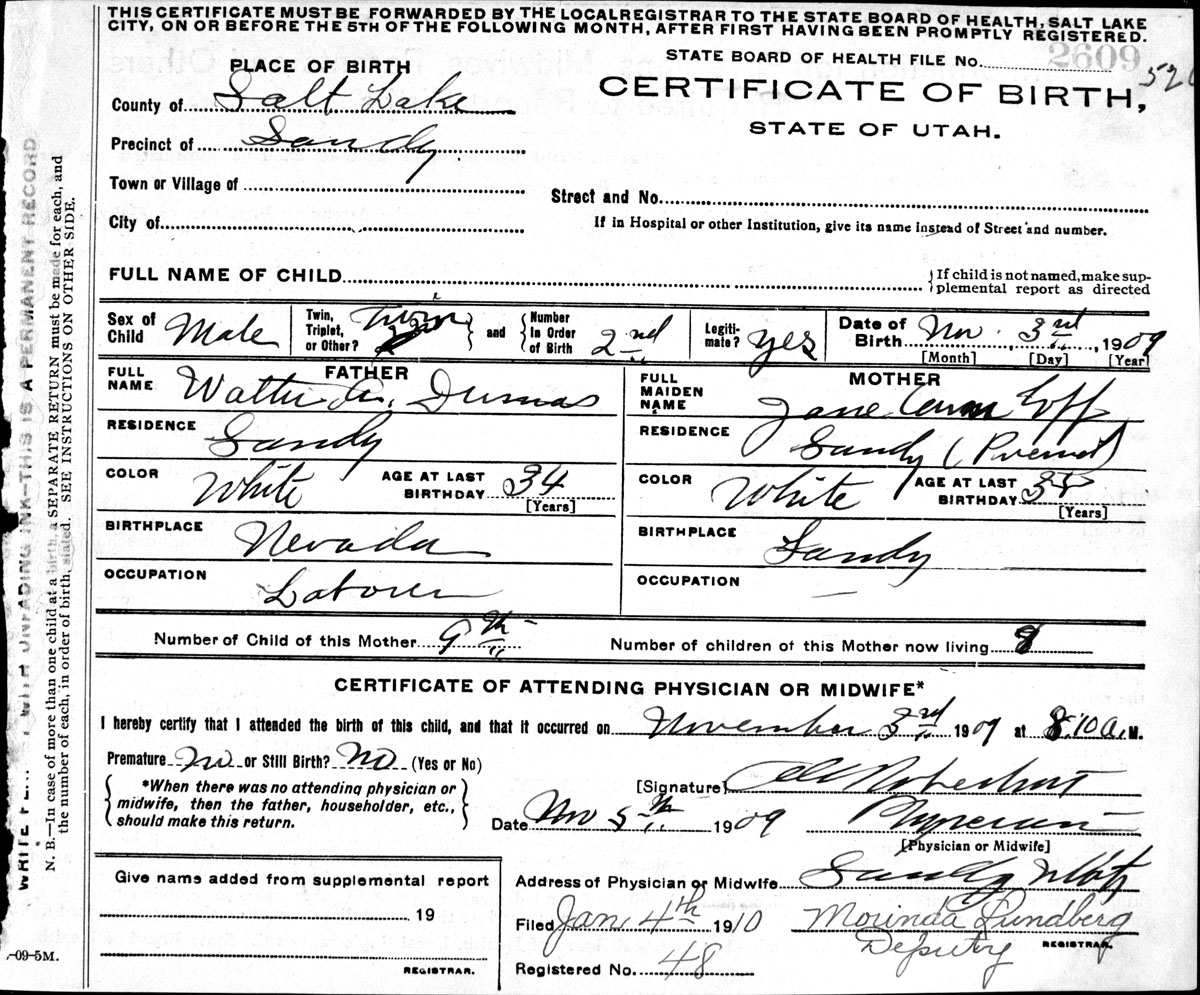 THIS CERTIFICATE MUST BE FORWARDED BY THE LOCALREGISTRAR TO THE STATE BOARD OF HEALTH, SALT LAKE
CITY, ON OR BEFORE THE 5TH OF THE FOLLOWING MONTH, AFTER FIRST HAVING BEEN PROMPTLY REGISTERED.
STATE BOARD OF HEALTH FILE No. 2609
PLACE OF BIRTH
CERTIFICATE OF BIRTH,
STATE OF UTAH.
County of Salt Lake
Precinct of Sandy
Town or Village of
Street and No.
City of
If in Hospital or other Institution, give its name instead of Street and number.
FULL NAME OF CHILD
If child is not named, make sup-
plemental report as directed
Sex of Child Male
Twin, Triplet, or Other? Twin
and Number In Order of Birth 2nd
Legiti-mate? yes
Date of Birth Nov. 3rd, 1909
[Month] [Day] [Year]
FATHER
FULL NAME Walter A. Dumas
RESIDENCE Sandy
COLOR White
AGE AT LAST BIRTHDAY 34
[Years]
BIRTHPLACE Nevada
OCCUPATION Laborer
MOTHER
FULL MAIDEN NAME Jane Ann Goff
RESIDENCE Sandy
COLOR White
AGE AT LAST BIRTHDAY
[Years]
BIRTHPLACE Sandy
OCCUPATION —
Number of Child of this Mother 9th
Number of children of this Mother now living 8
CERTIFICATE OF ATTENDING PHYSICIAN OR MIDWIFE*
I hereby certify that I attended the birth of this child, and that it occurred on November 3rd 1909 at 8:10 A.M.
Premature No or Still Birth? No (Yes or No)
*When there was no attending physician or
midwife, then the father, householder, etc.,
should make this return.
[Signature]
Date Nov 5th 1909
Physician
[Physician or Midwife]
Address of Physician or Midwife Sandy Utah
Give name added from supplemental report
19
REGISTRAR.
Filed Jan. 4th 1910
Lundberg
Deputy REGISTRAR.
Registered No. 48
-09-5M.
THIS IS A PERMANENT RECORD
N. B.—In case of more than one child at a birth, a SEPARATE RETURN must be made for each, and
the number of each, in order of birth, stated. SEE INSTRUCTIONS ON OTHER SIDE.